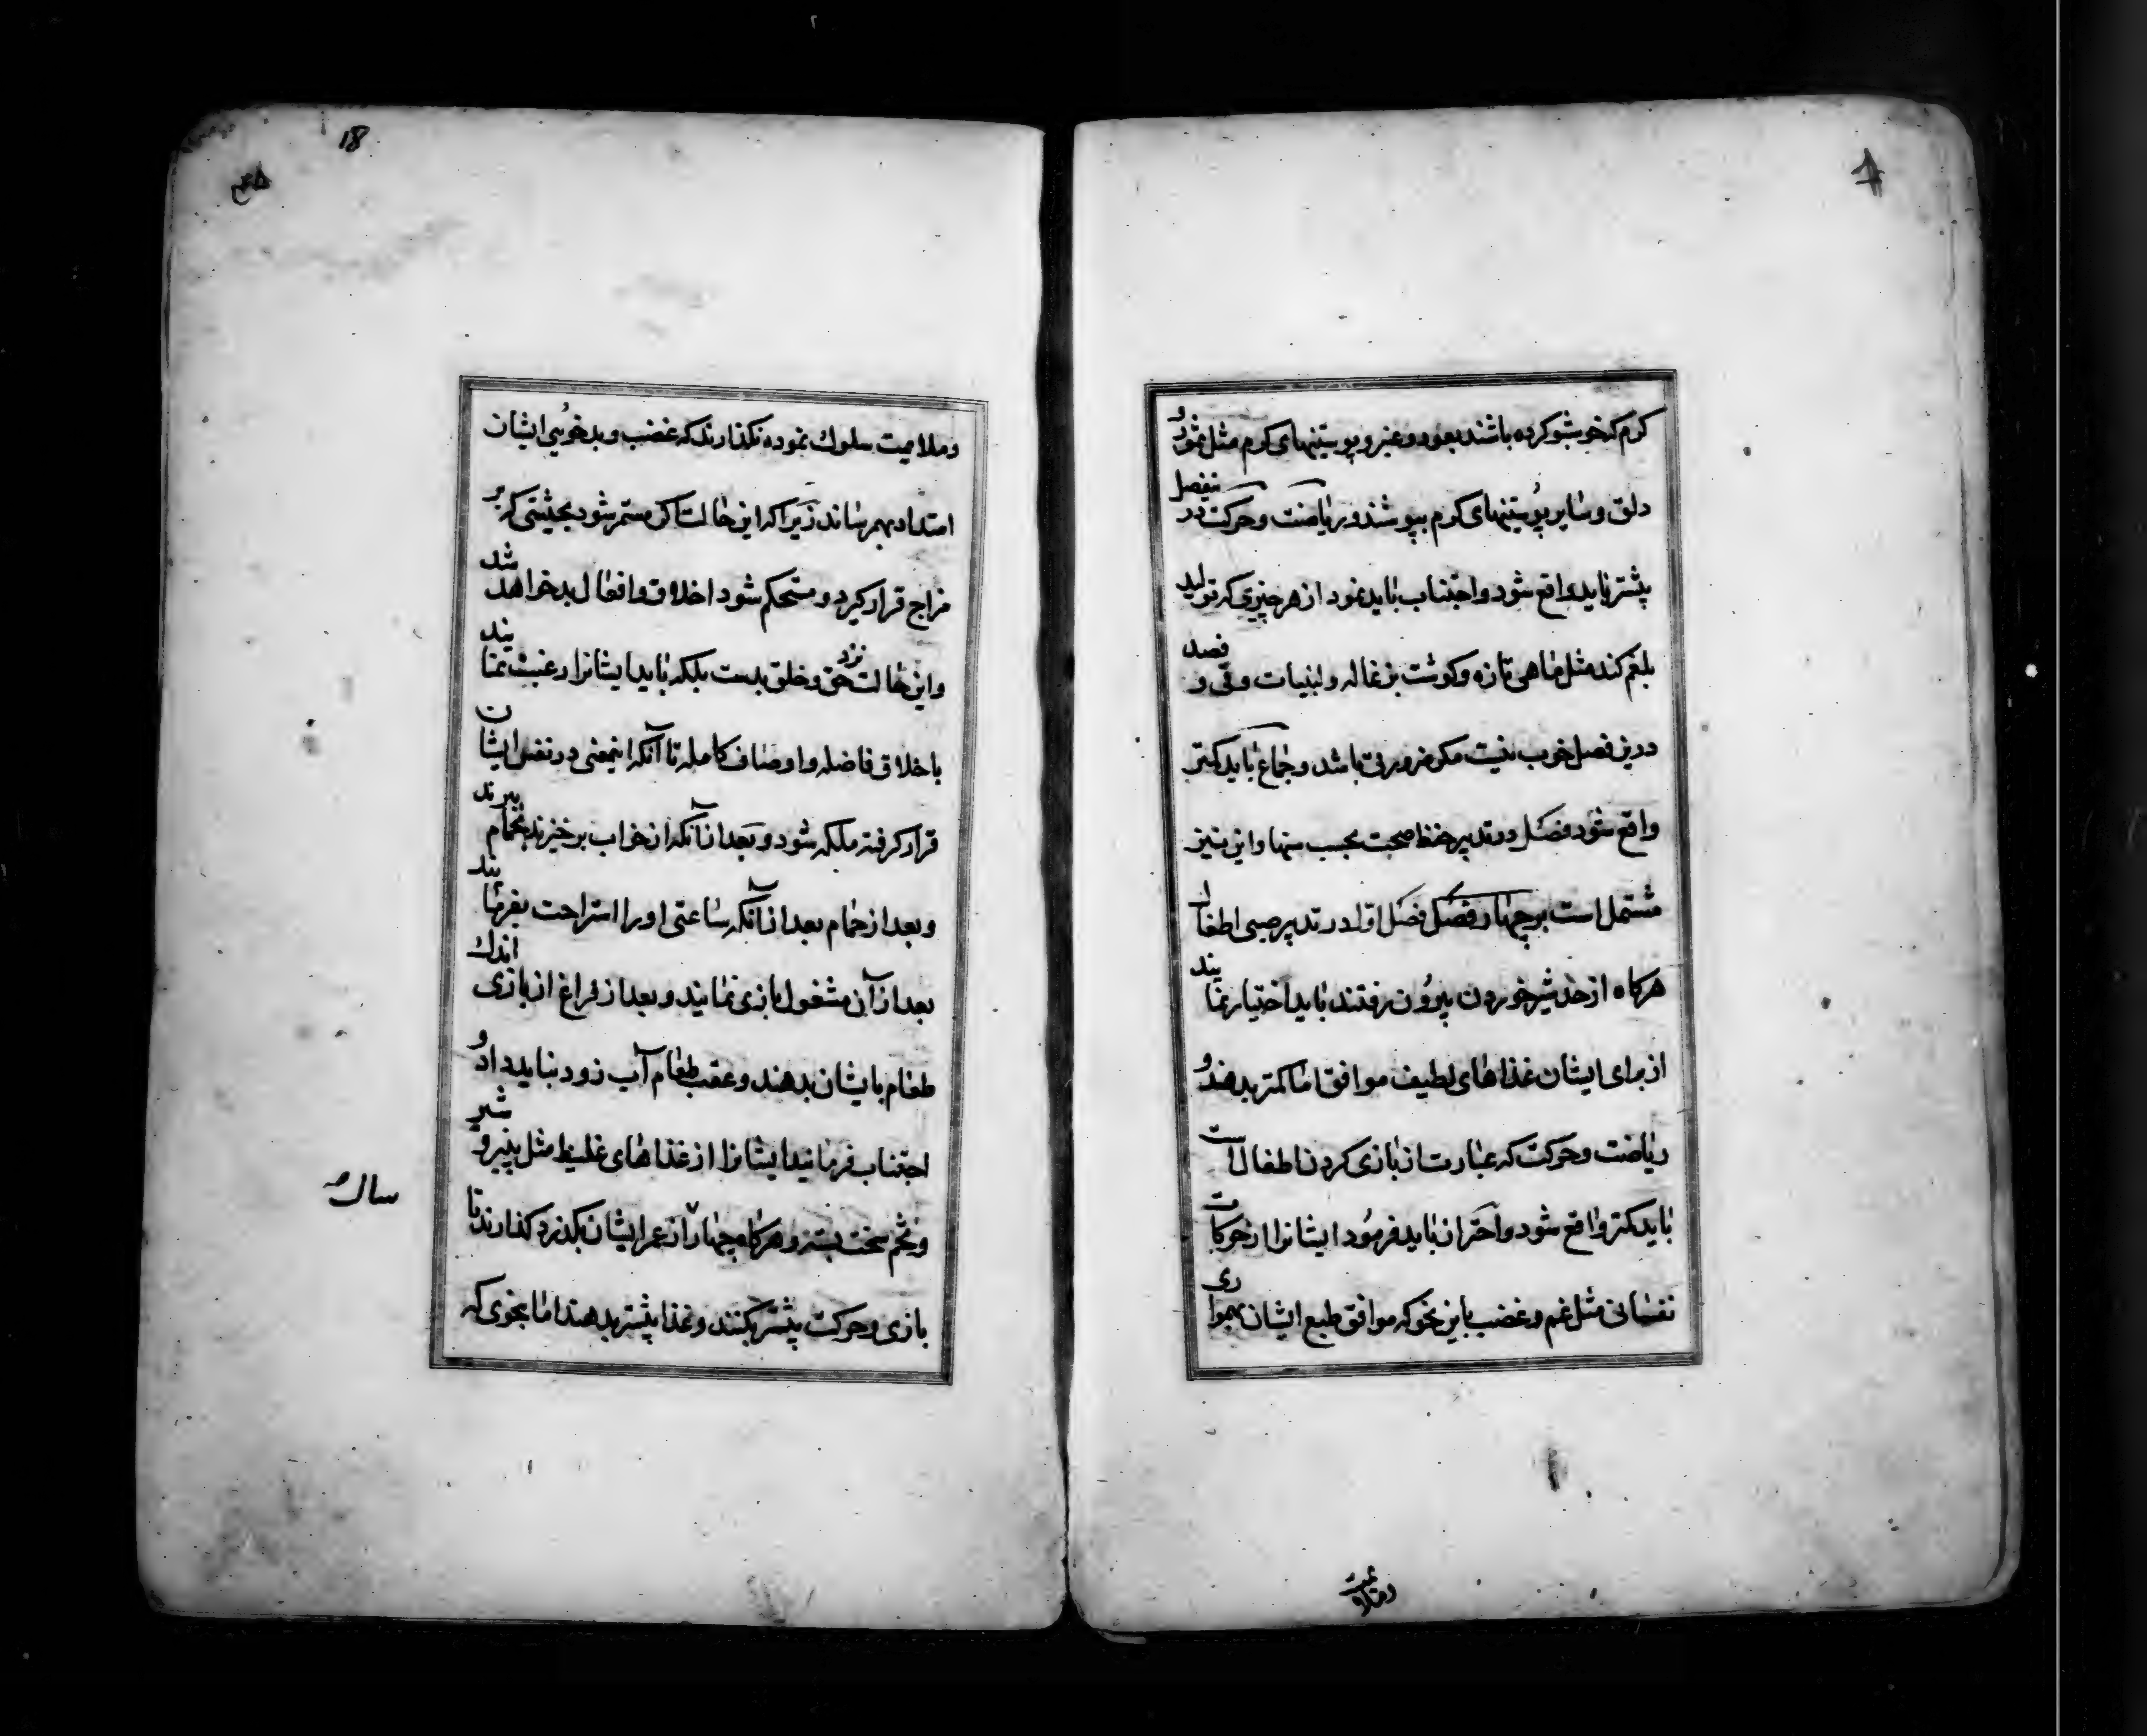 کرم که خوشبو کرده باشند بعود و عنبر و پوستینهای کرم مثل سمور و
دلق و سایر پوستینهای کرم بپوشند و ریاضت و حرکت در ینفصل
پیشتر باید واقع شود و اجتناب باید نمود از هر چیزی که تولید
بلغم کند مثل ماهی تازه و کوشت بزغاله و لبنیات و قی و فصد
درین فصل خوب نیست مکر ضرورتی باشد و جماع باید کمتر
واقع شود فصل در تدبیر حفظ صحت بحسب سنها و این نیز
مشتمل است بر چهار فصل فصل اول در تدبیر صبی اطفال
هرکاه از حد شیر خوردن بیرون رفتند باید اختیار نمایند
از برای ایشان غذاهای لطیف موافق اما کمتر بدهند و
ریاضت و حرکت که عبارت از بازی کردن اطفال است
باید کمتر واقع شود و احتراز باید فرمود ایشانرا از حرکات
نفسانی مثل غم و غضب باین نحو که موافق طبع ایشان بهمواری
و ملایمت
18
و ملایمت سلوک نموده نکذارند که غضب و بدخویی ایشان
امتداد بهم رساند زیرا که این حالت اکر مستمر شود بحیثیتی که بر
مزاج قرار کیرد و مستحکم شود اخلاق و افعال بد خواهد شد
و این حالت نزد حق و خلق بدست بلکه باید ایشانرا رغبت نمایند
باخلاق فاضله و اوصاف کامله تا آنکه اینمعنی در نفس ایشان
قرار کرفته ملکه شود و بعد از آنکه از خواب برخیزند بحمام برند
و بعد از حمام بعد از آنکه ساعتی او را استراحت بفرمایند
بعد از آن مشغول بازی نمایند و بعد از فراغ از بازی اندک
طعام بایشان بدهند و عقب طعام آب زود نباید داد و
اجتناب فرمایند ایشانرا از غذاهای غلیظ مثل پنیر و شیر
و تخم سخت بسته و هرکاه چهار از عمر ایشان بکذرد کذارند تا
سال
بازی و حرکت پیشتر بکنند و غذا پیشتر بدهند اما بنحوی که